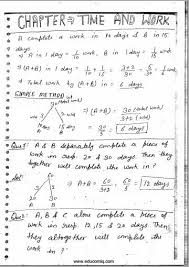 CHAPTER ⇒ TIME AND WORK
A complete a work in 10 days & B in 15
days
⇒ A in 1 day = 1/10 work, B in 1 day = 1/15
⇒ (A+B) in 1 day = 1/10 + 1/15 = 3+2/30 = 5/30 = 1/6
⇒ Total work by (A+B) in = 6 days
SIMPLE METHOD
30 (Total work)
3 2
A B
10 15
⇒ (A+B) = 30 (Total work)/3+2
30/5 = 6 days
Que: A & B separately complete a piece of
work in resp. 20 & 30 days. Then they
together will complete the work in?
Sol
60
3 2
A B
20 30
⇒ A+B = 60/3+2 = 60/5 = 12 days
Que: A, B & C alone complete a piece of
work in resp. 12, 15 & 20 days. Then,
they altogether will complete the
work in
www.educomiq.com